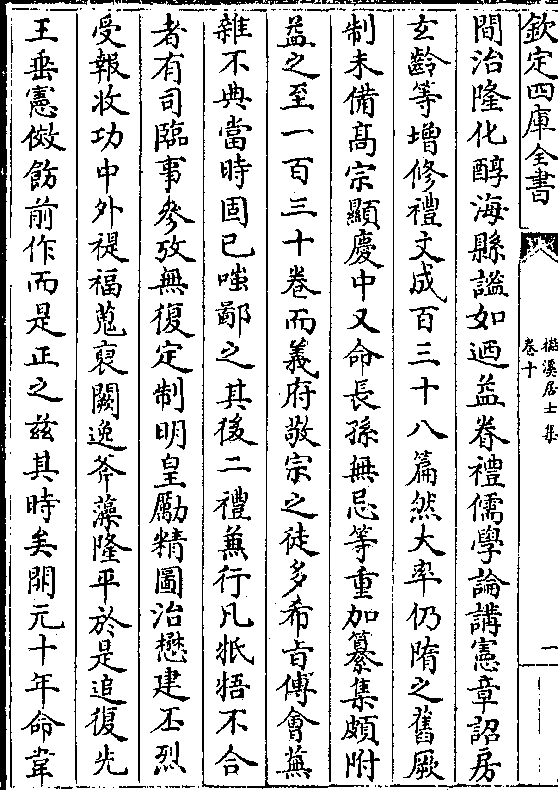 欽定四庫全書
檆溪居士集
卷十
一
間治隆化醇海縣謐如迺益眷禮儒學論講憲章詔房
玄齡等增修禮文成百三十八篇然大率仍隋之舊厥
制未備高宗顯慶中又命長孫無忌等重加纂集頗附
益之至一百三十卷而義府敬宗之徒多希㫖傅會蕪
雜不典當時固已嗤鄙之其後二禮兼行凡牴牾不合
者有司臨事參攷無復定制明皇勵精圖治懋建丕烈
受報收功中外禔福蒐裒闕逸斧藻隆平於是追復先
王垂憲傚飭前作而是正之兹其時矣開元十年命韋